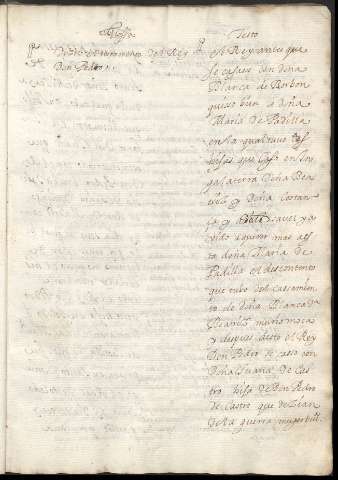 Testo
Del testamento del Rey
Don Pedro
El Rey antes que
se casase con doña
Blanca de Borbon
quiso bien a doña
Maria de Padilla
en la qual tuvo tres
hijas que casó en
galaterra Doña Bea
triz y Doña Costan
ça y savel ya
mas a
doña Maria de
Padilla el descontento
que tubo del casamien
to de doña Blanca
y despues desto el Rey
Don Pedro se caso con
Doña Juana de Cas
tro hija de Don Pedro
de Castro que dezian
de la guerra muger